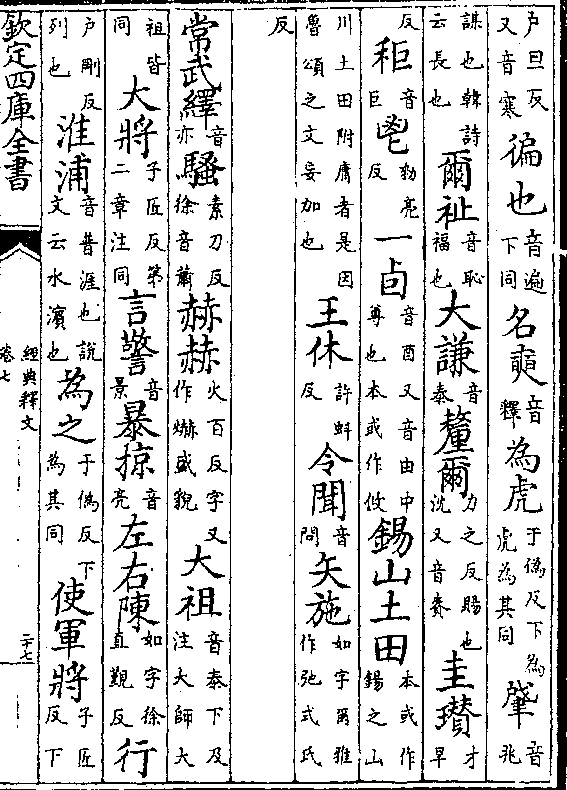 戶旦反又音寒徧也音遍下同名奭音釋為虎于偽反下為虎為其同肇音兆
謀也韓詩云長也爾祉音恥福也大謙音泰釐爾力之反賜也沈又音賚圭瓚才旱
反秬音巨鬯勑亮反一卣音酉又音由中尊也本或作攸錫山土田本或作錫之山
川土田附庸者是因魯頌之文妄加也王休許蚪反令聞音問矢施如字爾雅作弛式氏
反
常武繹音亦騷素刀反徐音蕭赫赫火百反字又作爀盛貌大祖音泰下及注大師大
祖皆同大將子匠反第二章注同言警音景暴掠音亮左右陳如字徐直覲反行
戶剛反列也淮浦音普涯也說文云水濱也為之于偽反下為其同使軍將子匠反下
欽定四庫全書
經典釋文
卷七
二十七